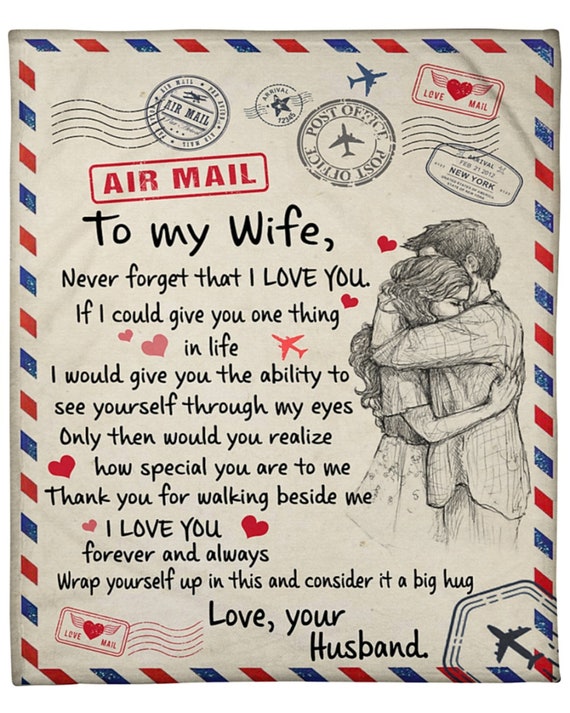 AIR MAIL
AIR MAIL
ARRIVAL
12345
POST OFFICE
POST OFFICE
LOVE MAIL
ARRIVAL
FEB 21 2012
NEW YORK
AIR MAIL
To my Wife,
Never forget that I LOVE YOU.
If I could give you one thing
in life
I would give you the ability to
see yourself through my eyes
Only then would you realize
how special you are to me
Thank you for walking beside me
I LOVE YOU
forever and always
Wrap yourself up in this and consider it a big hug
Love, your
Husband.
LOVE MAIL